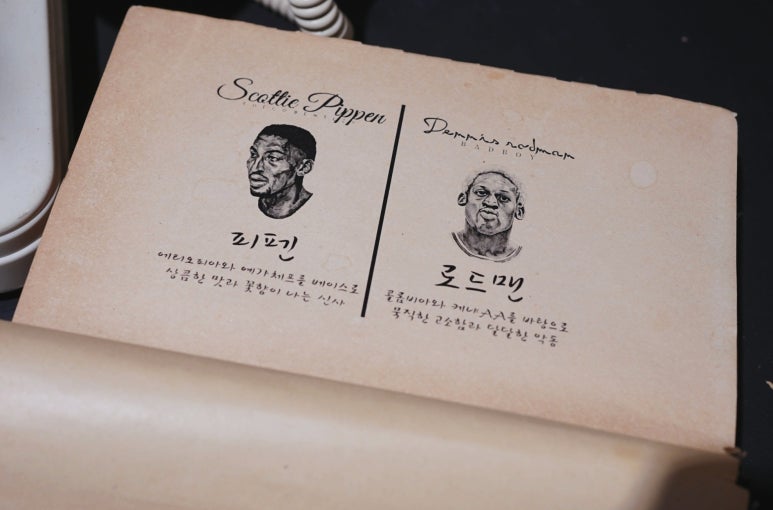 Scottie Pippen
피펜
에티오피아와 예가체프를 베이스로
상큼한 맛과 꽃향이 나는 신사
Dennis rodman
BADBOY
로드맨
콜롬비아와 케냐AA를 바탕으로
묵직한 고소함과 달달한 악동